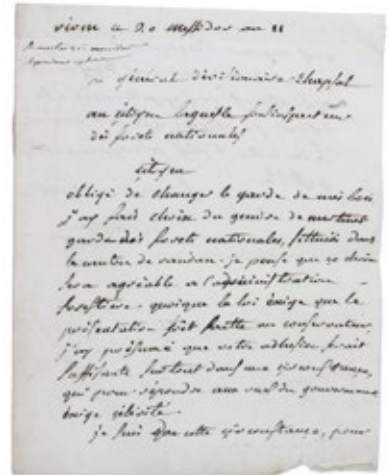 ce 20 messidor an 11
général divisionnaire Chapsal
au citoyen laquette sousinspecteur
des forets nationales
citoyen
obligé de changer le garde de mes bois
j'ay fait choix du
garde des forets nationales, dans
le canton de randan. je pense que ce choix
sera agréable a l'administration
forestière. quoique la loi exige que la
présentation fut faitte au conservateur,
j'ay présumé que votre adhesion, serait
suffisante surtout dans une circonstance,
qui pour répondre aux vues du gouvernement
exige célérité.
je suis dans cette circonstance, pour